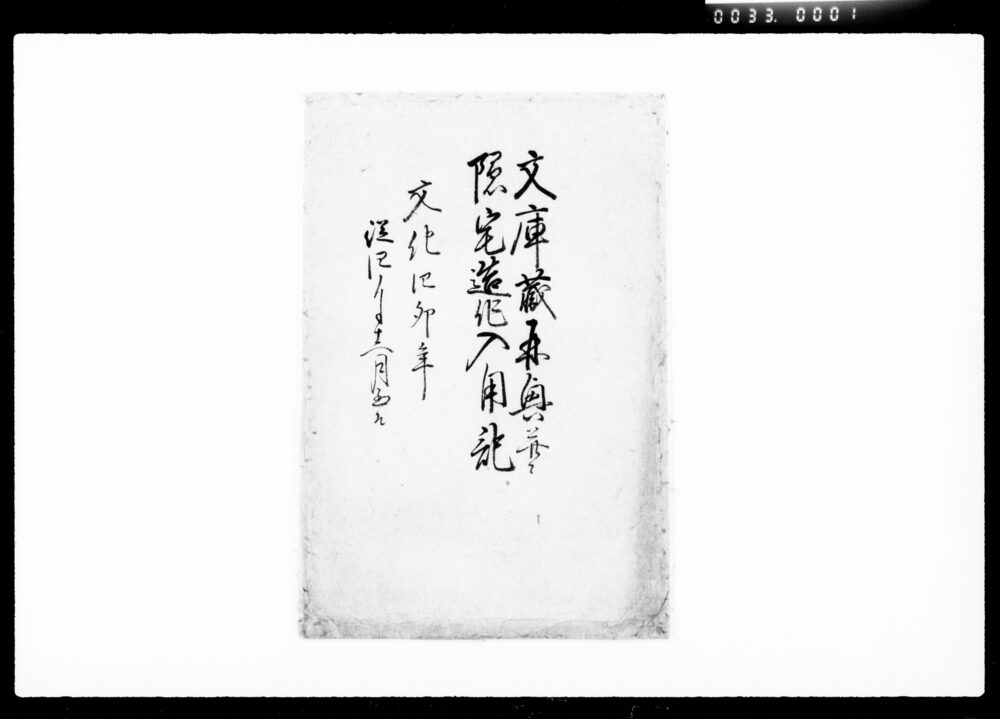 0033. 0001
文庫蔵再興並
隠宅造作入用記
文化四卯年
従四月十二月迄